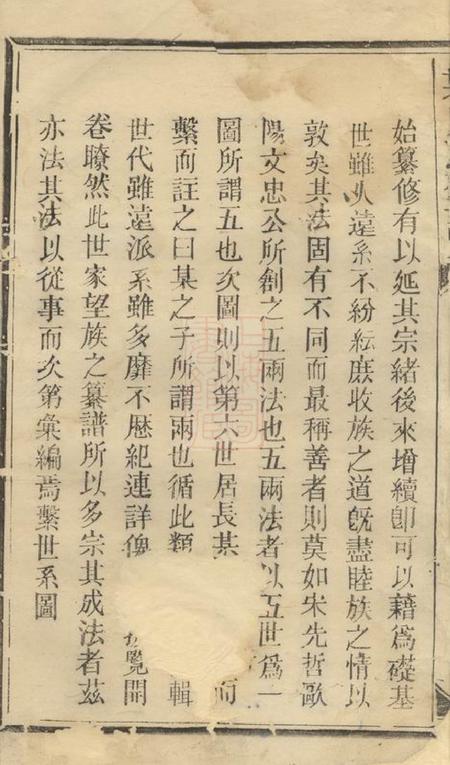 始纂修有以延其宗緒後來增續卽可以藉爲礎基
世雖久遠系不紛紜庶收族之道旣盡睦族之情以
敦矣其法固有不同而最稱善者則莫如宋先哲歐
陽文忠公所創之五兩法也五兩法者以五世爲一
圖所謂五也次圖則以第六世居長某 而
繫而註之曰某之子所謂兩也循此類 輯
世代雖遠派系雖多靡不歷紀連詳俻 覽開
卷瞭然此世家望族之纂譜所以多宗其成法者茲
亦法其法以從事而次第彙編焉繫世系圖